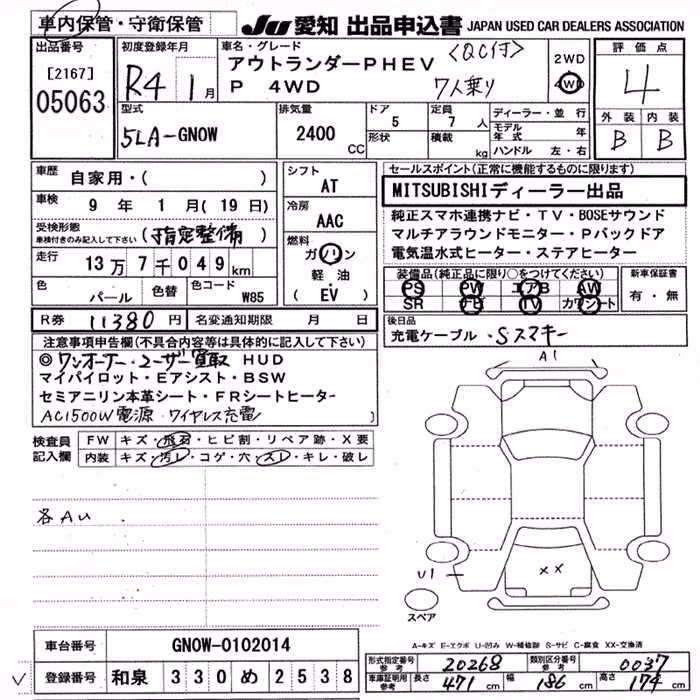 車内保管・守衛保管
JU 愛知 出品申込書 JAPAN USED CAR DEALERS ASSOCIATION
出品番号
[2167]
05063
初度登録年月
R4 1月
車名・グレード
アウトランダーPHEV 〈QC付〉
P 4WD 7人乗り
2WD
4WD
評価点
4
外装 内装
B B
型式
5LA-GN0W
排気量
2400 CC
ドア
5
形状
定員
7 人
積載
kg
ディーラー・並行
モデル年式 年
ハンドル 左・右
車歴
自家用・( )
車検
9 年 1 月 (19 日)
受検形態
車検付きのみ記入して下さい
(指定整備)
走行
13 万 7 千 0 4 9 km
色
パール
色替
色コード
W85
シフト
AT
冷房
AAC
燃料
ガソリン
軽油
(EV)
セールスポイント(正常に機能するものに限ります)
MITSUBISHIディーラー出品
純正スマホ連携ナビ・TV・BOSEサウンド
マルチアラウンドモニター・Pバックドア
電気温水式ヒーター・ステアヒーター
装備品(純正品に限り○をつけてください)
PS PW エアB AW
SR ナビ TV カワシート
新車保証書
有・無
R券 11380 円
名変通知期限 月 日
後日品
充電ケーブル・Sスマキー
注意事項申告欄(不具合内容等は具体的に記入して下さい)
◎ワンオーナー・ユーザー買取 HUD
マイパイロット・Eアシスト・BSW
セミアニリン本革シート・FRシートヒーター
AC1500W電源・ワイヤレス充電
検査員記入欄
FW キズ・飛石・ヒビ割・リペア跡・X要
内装 キズ・汚レ・コゲ・穴・スレ・キレ・破レ
各AU
A1
U1
××
スペア
A-キズ E-エクボ U-凹み W-補修跡 S-サビ C-腐食 XX-交換済
車台番号 GN0W-0102014
登録番号 和泉 330 め 2538
形式指定番号 参考 20268
類別区分番号 参考 0037
車庫証明用 参考 長さ 471cm 幅 186cm 高さ 174cm